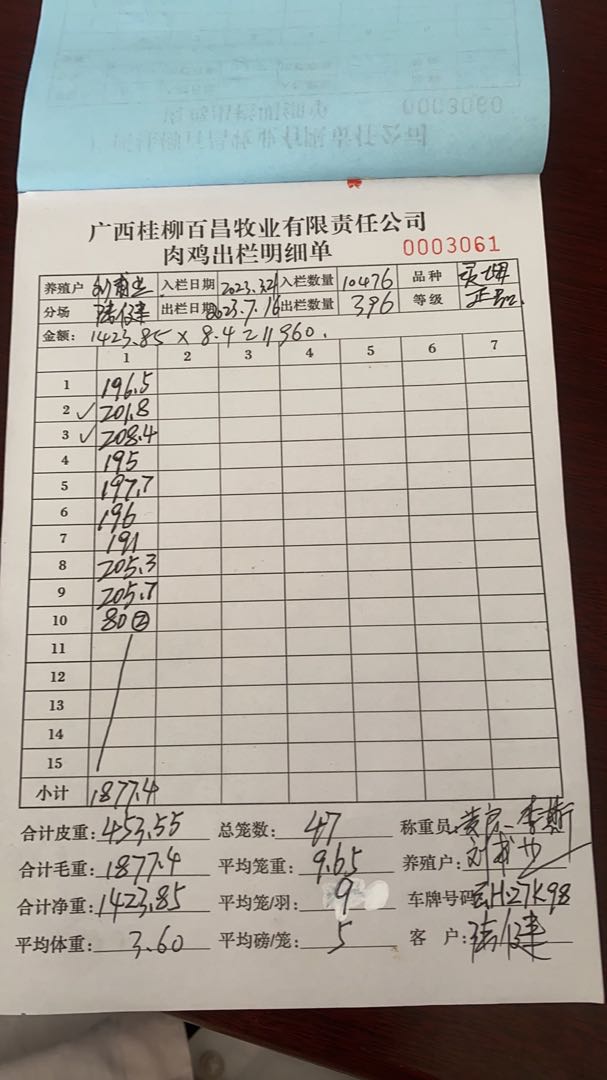 广西桂柳百昌牧业有限责任公司
肉鸡出栏明细单 0003061
养殖户 入栏日期 2023.3.21 入栏数量 10476 品种
分场 出栏日期 2023.7.16 出栏数量 396 等级 正品
金额: 1423.85 × 8.4 = 11960.
1 2 3 4 5 6 7
1 196.5
2 ✓ 201.8
3 ✓ 208.4
4 195
5 197.7
6 196
7 191
8 205.3
9 205.7
10 80 ②
11
12
13
14
15
小计 1877.4
合计皮重: 453.55 总笼数: 47 称重员:
合计毛重: 1877.4 平均笼重: 9.65 养殖户:
合计净重: 1423.85 平均笼/羽: 9 车牌号码: H27K98
平均体重: 3.60 平均磅/笼: 5 客 户: